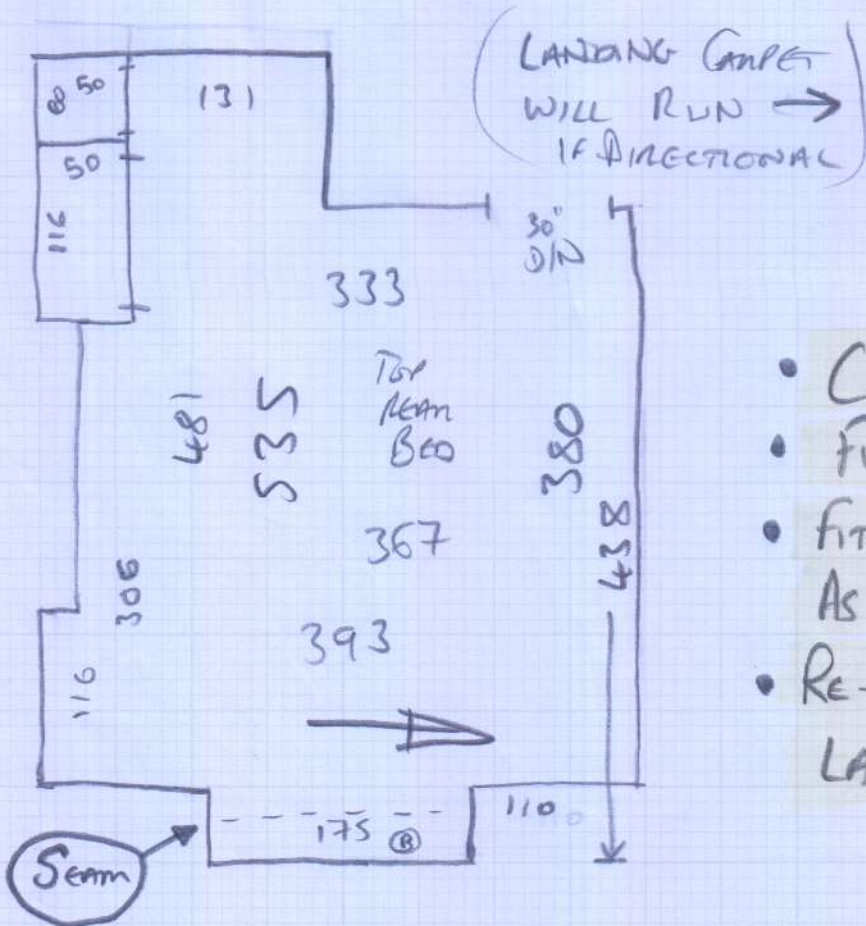 (LANDING CARPET
WILL RUN →
IF DIRECTIONAL)
60 50
131
50
116
30"
D/N
333
481
535
TOP
REAR
BED
380
438
367
306
393
116
175 Ⓑ
110
SEAM
• C
• Fi
• FIT
AS
• RE-
LA